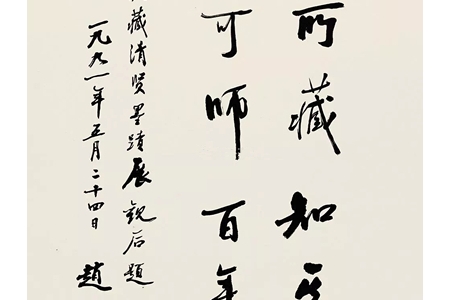 所藏知
可師百年
藏清贤墨蹟展觀后題
一九九一年五月二十四日 趙